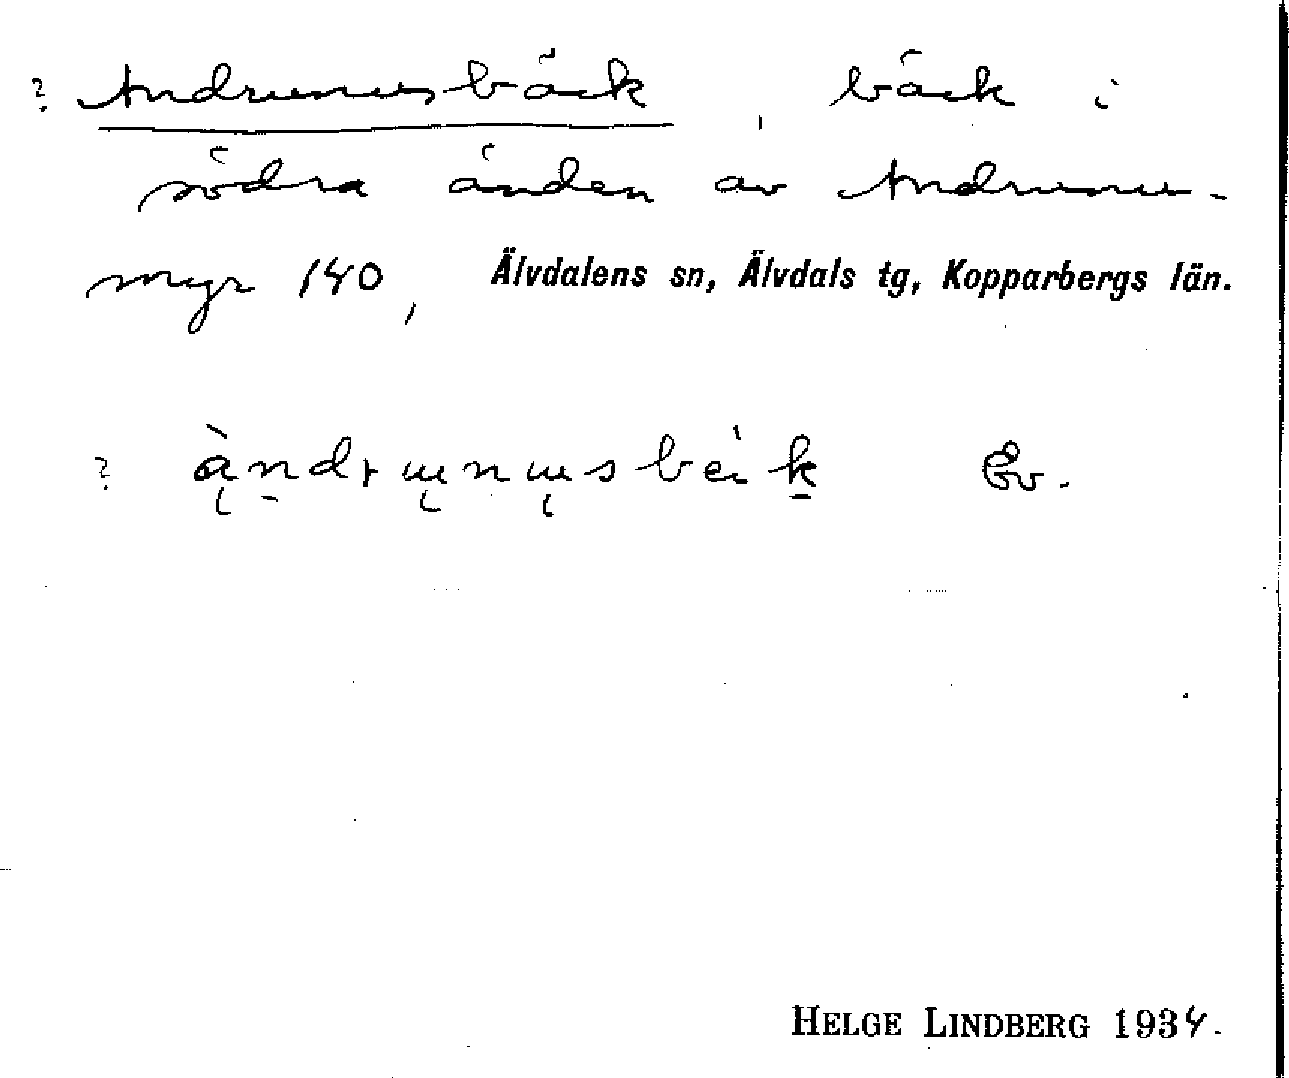 ? Andrunusbäck, bäck i
södra änden av Andrunu-
myr 140, Älvdalens sn, Älvdals tg, Kopparbergs län.
? Ev.
HELGE LINDBERG 1934.